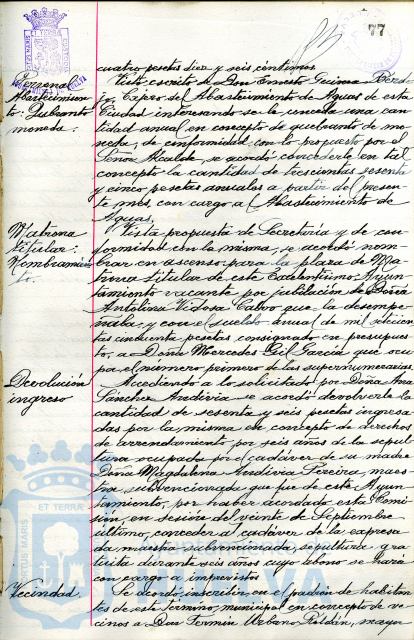 77
cuatro pesetas diez y seis céntimos.
Personal
Abastecimien-
to: Quebranto
moneda.
Visto escrito de Don Ernesto Tecima Berde-
jo, Cajero del Abastecimiento de Aguas de esta
Ciudad interesando se le conceda una can-
tidad anual en concepto de quebranto de mo-
neda, de conformidad con lo propuesto por el
Señor Alcalde, se acordó concederle en tal
concepto la cantidad de trescientas sesenta
y cinco pesetas anuales a partir del presen-
te mes, con cargo a Abastecimiento de
Aguas.
Matrona
titular:
Nombramien-
to.
Vista propuesta de Secretaría y de con-
formidad con la misma, se acordó nom-
brar en ascenso para la plaza de Ma-
trona titular de este Excelentísimo Ayun-
tamiento vacante por jubilación de Doña
Antolina Vidosa Calvo que la desempe-
ñaba, y con el sueldo anual de mil setecien-
tas cincuenta pesetas consignado en presupues-
to, a Doña Mercedes Gil García que ocu-
pa el número primero de las supernumerarias.
Devolución
ingreso
Accediendo a lo solicitado por Doña Ana
Sánchez Andivia se acordó devolverle la
cantidad de sesenta y seis pesetas ingresa-
das por la misma en concepto de derechos
de arrendamiento por seis años de la sepul-
tura ocupada por el cadáver de su madre
Doña Magdalena Andivia Pereira, maes-
tra subvencionada que fue de este Ayun-
tamiento, por haber acordado esta Comi-
sión, en sesión del veinte de Septiembre
último, conceder al cadáver de la expresa-
da maestra subvencionada sepultura gra-
tuita durante seis años cuyo abono se hará
con cargo a imprevistos
Vecindad.
Se acordó inscribir en el padrón de habitan-
tes de este término municipal en concepto de ve-
cinos a Don Fermín Urbano Roldán, mayor